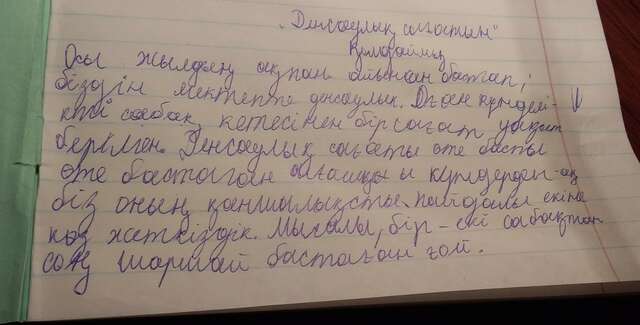 „Денсаулық сағатын"
Құлдаймыз
Осы жылдың ақпан айынан бастап,
біздің мектепте денсаулық. Оған күнделі-
кті сабақ кетесінен бір сағат уақыт
берілген. Денсаулық сағаты өте басты
өте бастаған алғашқы күндерден-ақ
біз оның қаншалықты пайдалы екіне
көз жеткіздік. Мысалы, бір-екі сабақтан
соң шаршай бастаған ғой.